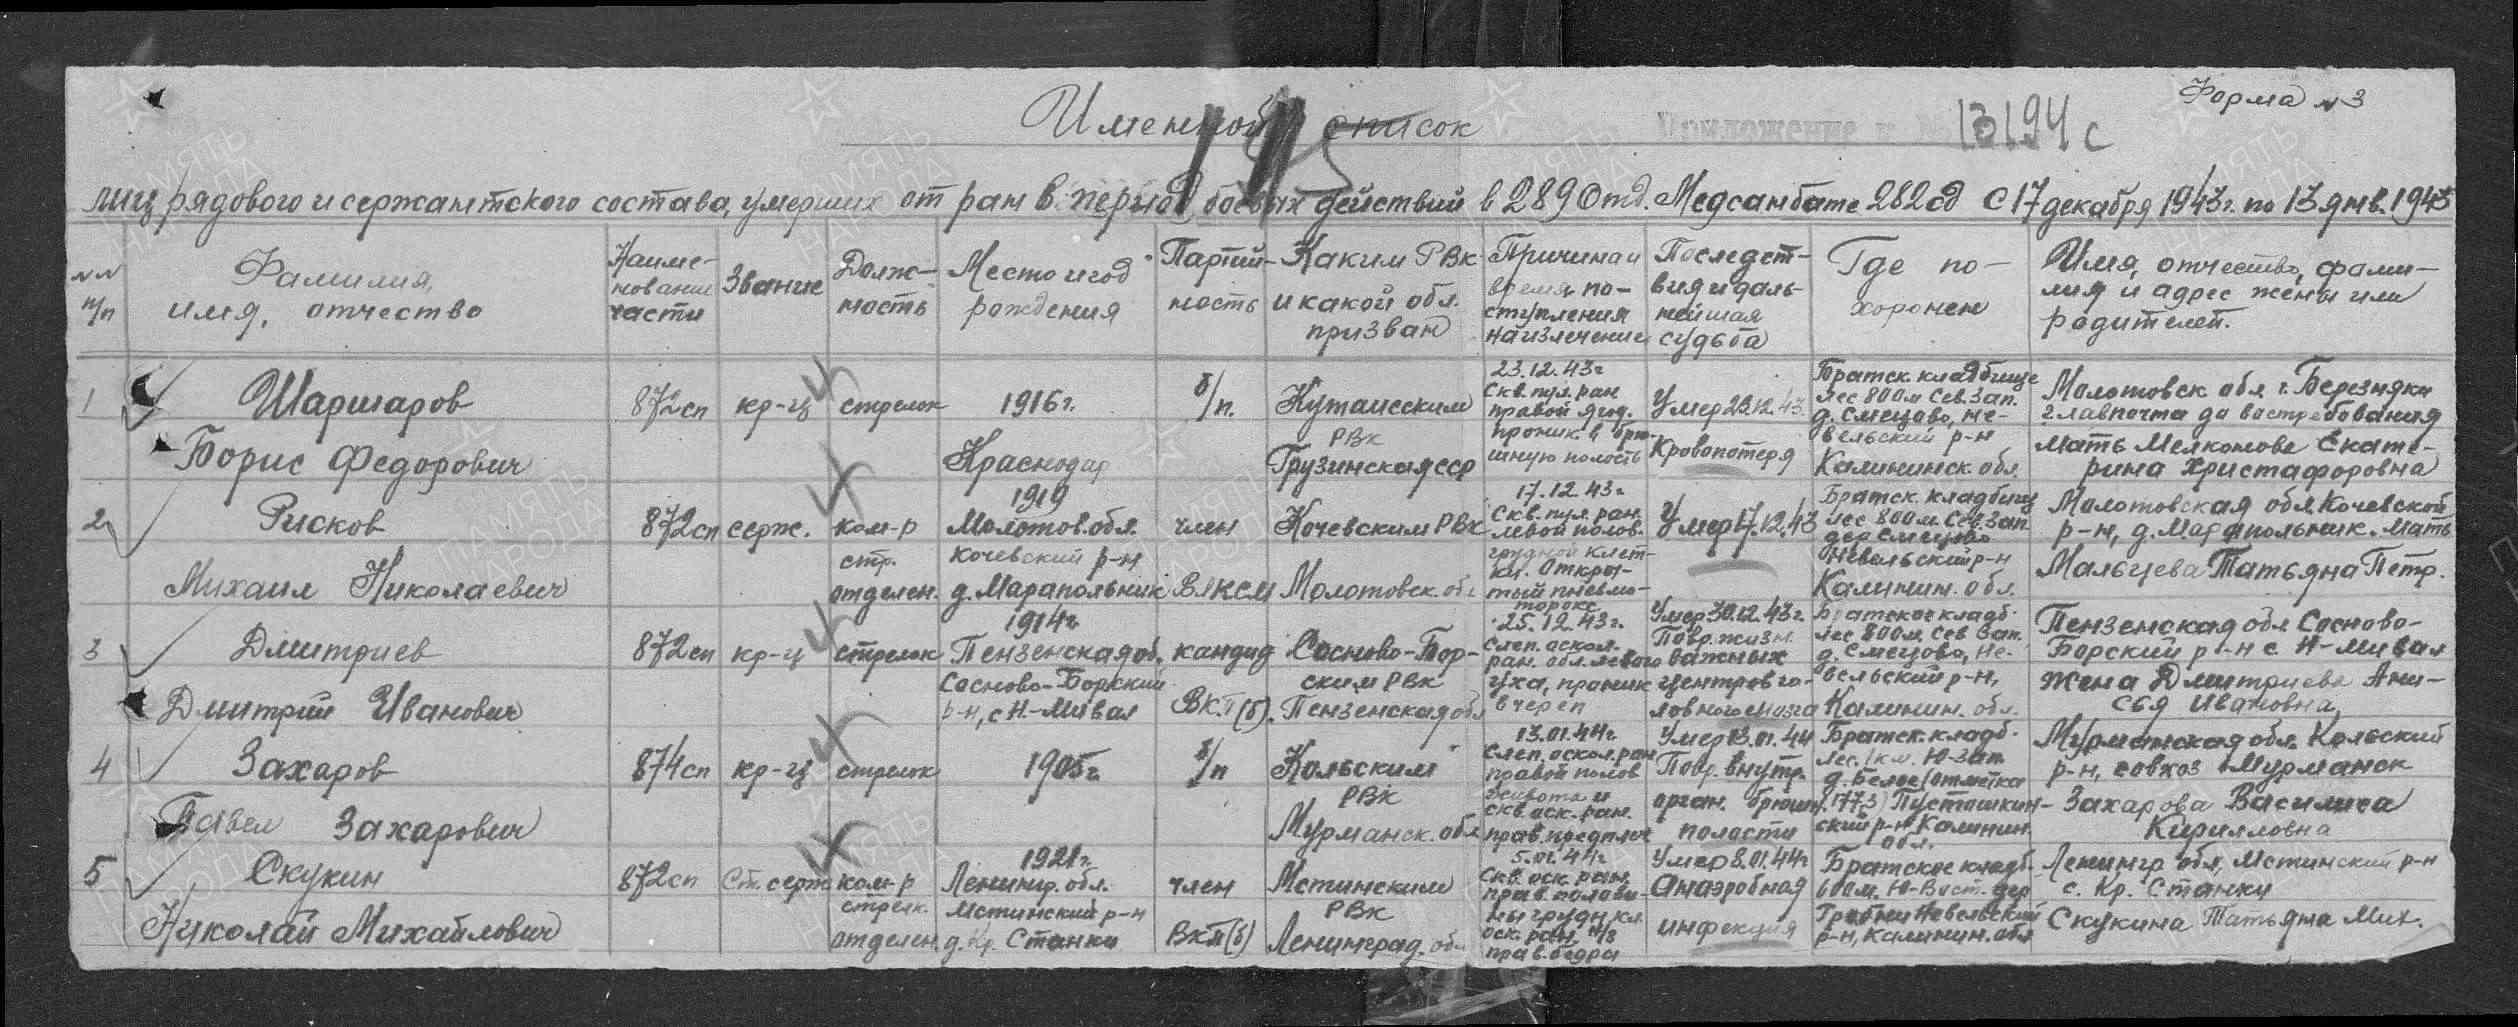 Форма №3
Именной список
Приложение к № 13194с
лиц рядового и сержантского состава, умерших от ран в период боевых действий в 289 Отд. Медсанбате 282сд с 17 декабря 1943г. по 13 янв. 1943
№№ п/п
Фамилия, имя, отчество
Наиме-
нование
части
Звание
Долж-
ность
Место и год
рождения
Партий-
ность
Каким РВК
и какой обл.
призван
Причина и
время по-
ступления
на излечение
Последст-
вия и даль-
нейшая
судьба
Где по-
хоронен
Имя, отчество, фами-
лия и адрес жены или
родителей.
1
Шаршаров
Борис Федорович
872сп
кр-ц
стрелок
1916г.
Краснодар
б/п.
Кутаисским
РВК
Грузинская сср
23.12.43г
Скв. пул. ран
правой ягод.
проник. в брю-
шную полость
Умер 23.12.43.
Кровопотеря
Братск. кладбище
лес 800м Сев. Зап.
д. Смецово, Не-
вельский р-н
Калининск. обл.
Молотовск обл г. Березняки
главпочта до востребования
мать Мелкомова Екате-
рина Христафоровна
2
Рисков
Михаил Николаевич
872сп
серж.
ком-р
стр.
отделен.
1919
Молотов. обл.
Кочевский р-н
д. Марапольник
член
ВЛКСМ
Кочевским РВК
Молотовск. обл
17.12.43г
Скв. пул. ран.
левой полов.
грудной клет-
ки. Откры-
тый пневмо-
торокс
Умер 17.12.43
Братск. кладбищ
лес 800м. Сев. Зап
дер Смецово
Невельский р-н
Калинин. обл.
Молотовская обл. Кочевской
р-н, д. Марапольник. Мать
Мальцева Татьяна Петр.
3
Дмитриев
Дмитрий Иванович
872сп
кр-ц
стрелок
1914г
Пензенская об.
Сосново-Борский
р-н, с Н-Мивал
кандид
ВКП(б).
Сосново-Бор-
ским РВК
Пензенская обл
25.12.43г.
Слеп. оскол.
ран. обл. левого
уха, проник
в череп
Умер 30.12.43г.
Повр. жизн.
важных
центров го-
ловного мозга
Братское кладб.
лес 800м. Сев Зап.
д. Смецово, Не-
вельский р-н,
Калинин. обл.
Пензенская обл Сосново-
Борский р-н с Н-Мивал
жена Дмитриева Ани-
сья Ивановна,
4
Захаров
Павел Захарович
874сп
кр-ц
стрелок
1905г.
б/п
Кольским
РВК
Мурманск. обл
13.01.44г.
Слеп. оскол. ран
правой полов
живота и
скв. оск. ран.
прав. предплеч
Умер 13.01.44
Повр. внутр.
орган. брюшн.
полости
Братск. кладб.
лес. 1 км. Ю-Зап.
д. Белое (отметка
177,3) Пустошкин-
ский р-н Калинин.
обл.
Мурманская обл. Кольский
р-н, совхоз Мурманск
Захарова Василиса
Кирилловна
5
Скукин
Николай Михайлович
872сп
Ст. серж
ком-р
стрелк.
отделен.
1921г.
Ленингр. обл.
Мстинский р-н
д. Кр. Станки
член
ВКП(б)
Мстинским
РВК
Ленинград. обл
5.01.44г
Скв. оск. ран.
прав. полови-
ны грудн. кл.
оск. ран. н/з
прав. бедра
Умер 8.01.44г
Анаэробная
инфекция
Братское кладб.
600м. Ю-Вост. дер
Гребни Невельский
р-н, Калинин. обл
Ленингр обл, Мстинский р-н
с. Кр. Станки
Скукина Татьяна Мих.